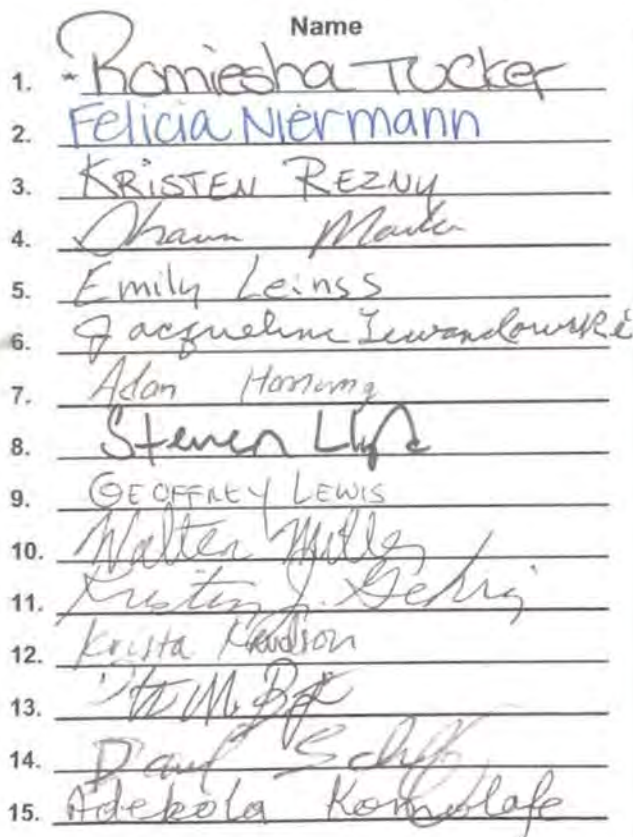 Name
1. Romiesha Tucker
2. Felicia Niermann
3. KRISTEN REZNY
4. Shawn
5. Emily Leinss
6. Jacqueline Lewandowski
7. Adan
8. Steven
9. GEOFFREY LEWIS
10. Walter Miller
11. Kristin J. Gehrig
12. Krista
13.
14.
15. Adebola Komolafe